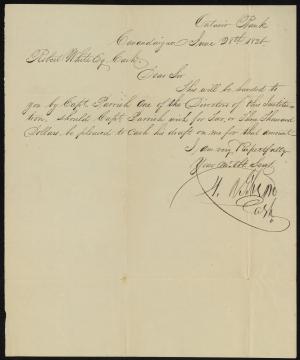 Ontario Bank
Canandaigua June 28th 182
Robert White Esq Cash
Dear Sir
This will be handed to
you by Capt. Parrish One of the Directors of this Institu-
tion. should Capt. Parrish wish for two, or Three Thousand
Dollars, be pleased to Cash his draft on me for that amount
I am very Respectfully
Your Mo Obt Servt
H. B. Gibson
Cash